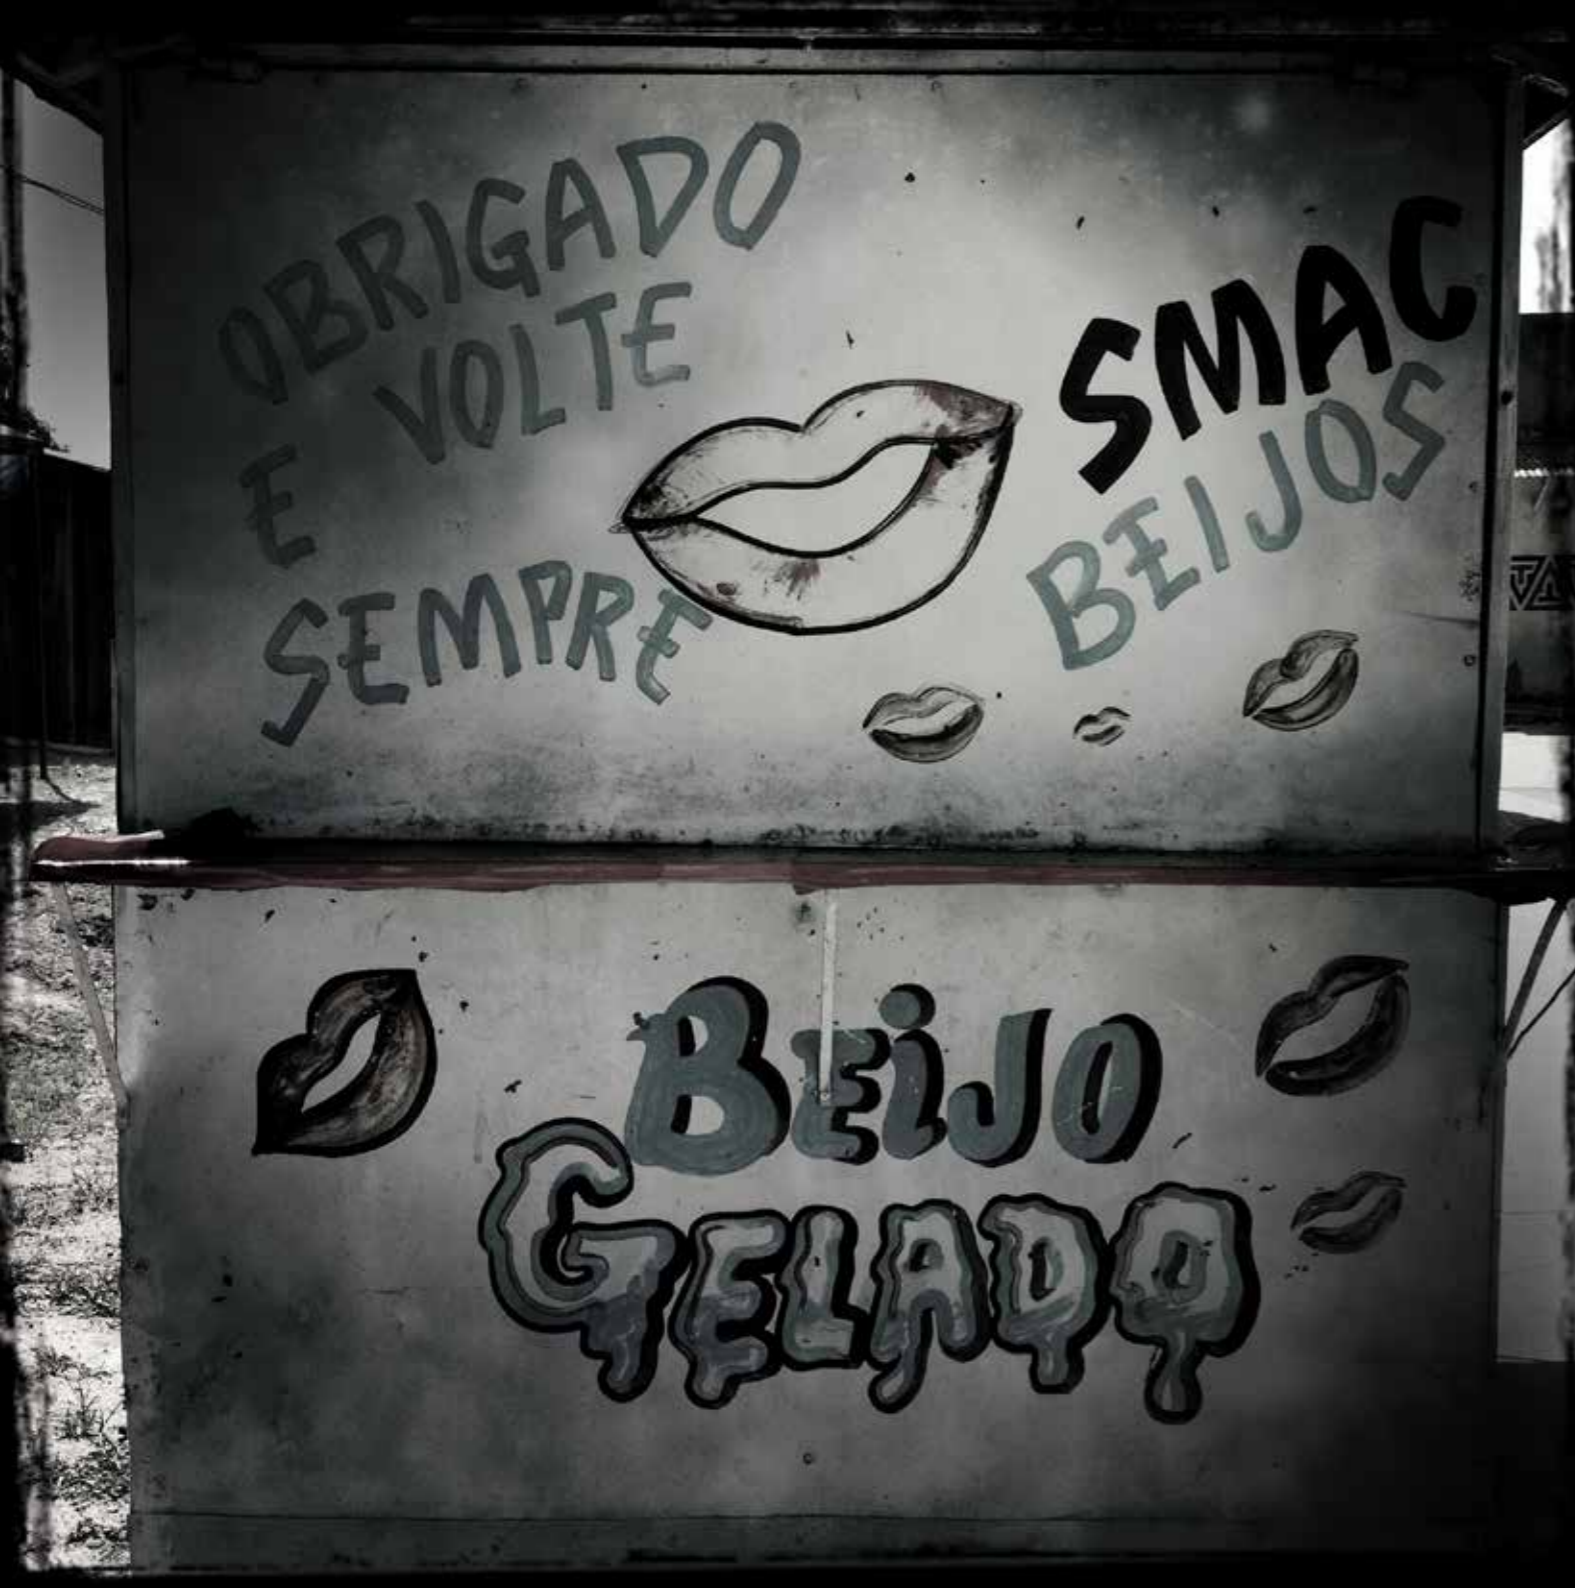 OBRIGADO
E VOLTE
SEMPRE
SMAC
BEIJOS
BEiJO
GELADO